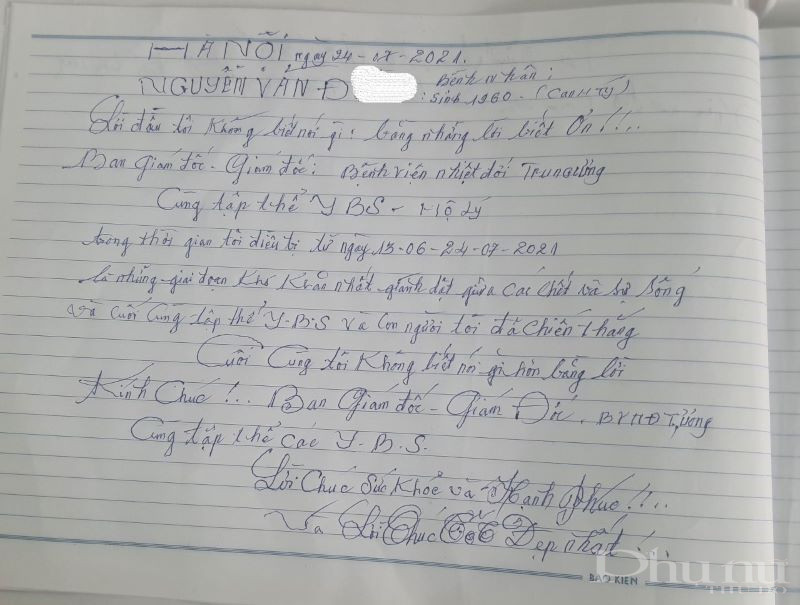 HÀ NỘI ngày 24-07-2021.
NGUYỄN VĂN Đ
Bệnh nhân:
: Sinh 1960 - (Canh Tý)
Lời đầu tôi không biết nói gì: bằng những lời biết Ơn!!...
Ban Giám đốc - Giám đốc: Bệnh viện nhiệt đới Trung ương
Cùng tập thể Y BS - Hộ Lý
trong thời gian tôi điều trị từ ngày 13-06-24-07-2021
là những giai đoạn khó khăn nhất giành dật giữa các chết và sự sống
và cuối cùng tập thể Y-B-S và con người tôi đã chiến thắng
Cuối cùng tôi không biết nói gì hơn bằng lời
Kính Chúc!... Ban Giám đốc - Giám Đốc. BVNĐ T,ương
Cùng tập thể các Y-B-S.
Lời Chúc Sức Khỏe và Hạnh phúc!!...
Và Lời Chúc Tốt Đẹp nhất!..
BAO KIEN
Phụ nữ
THỦ ĐÔ